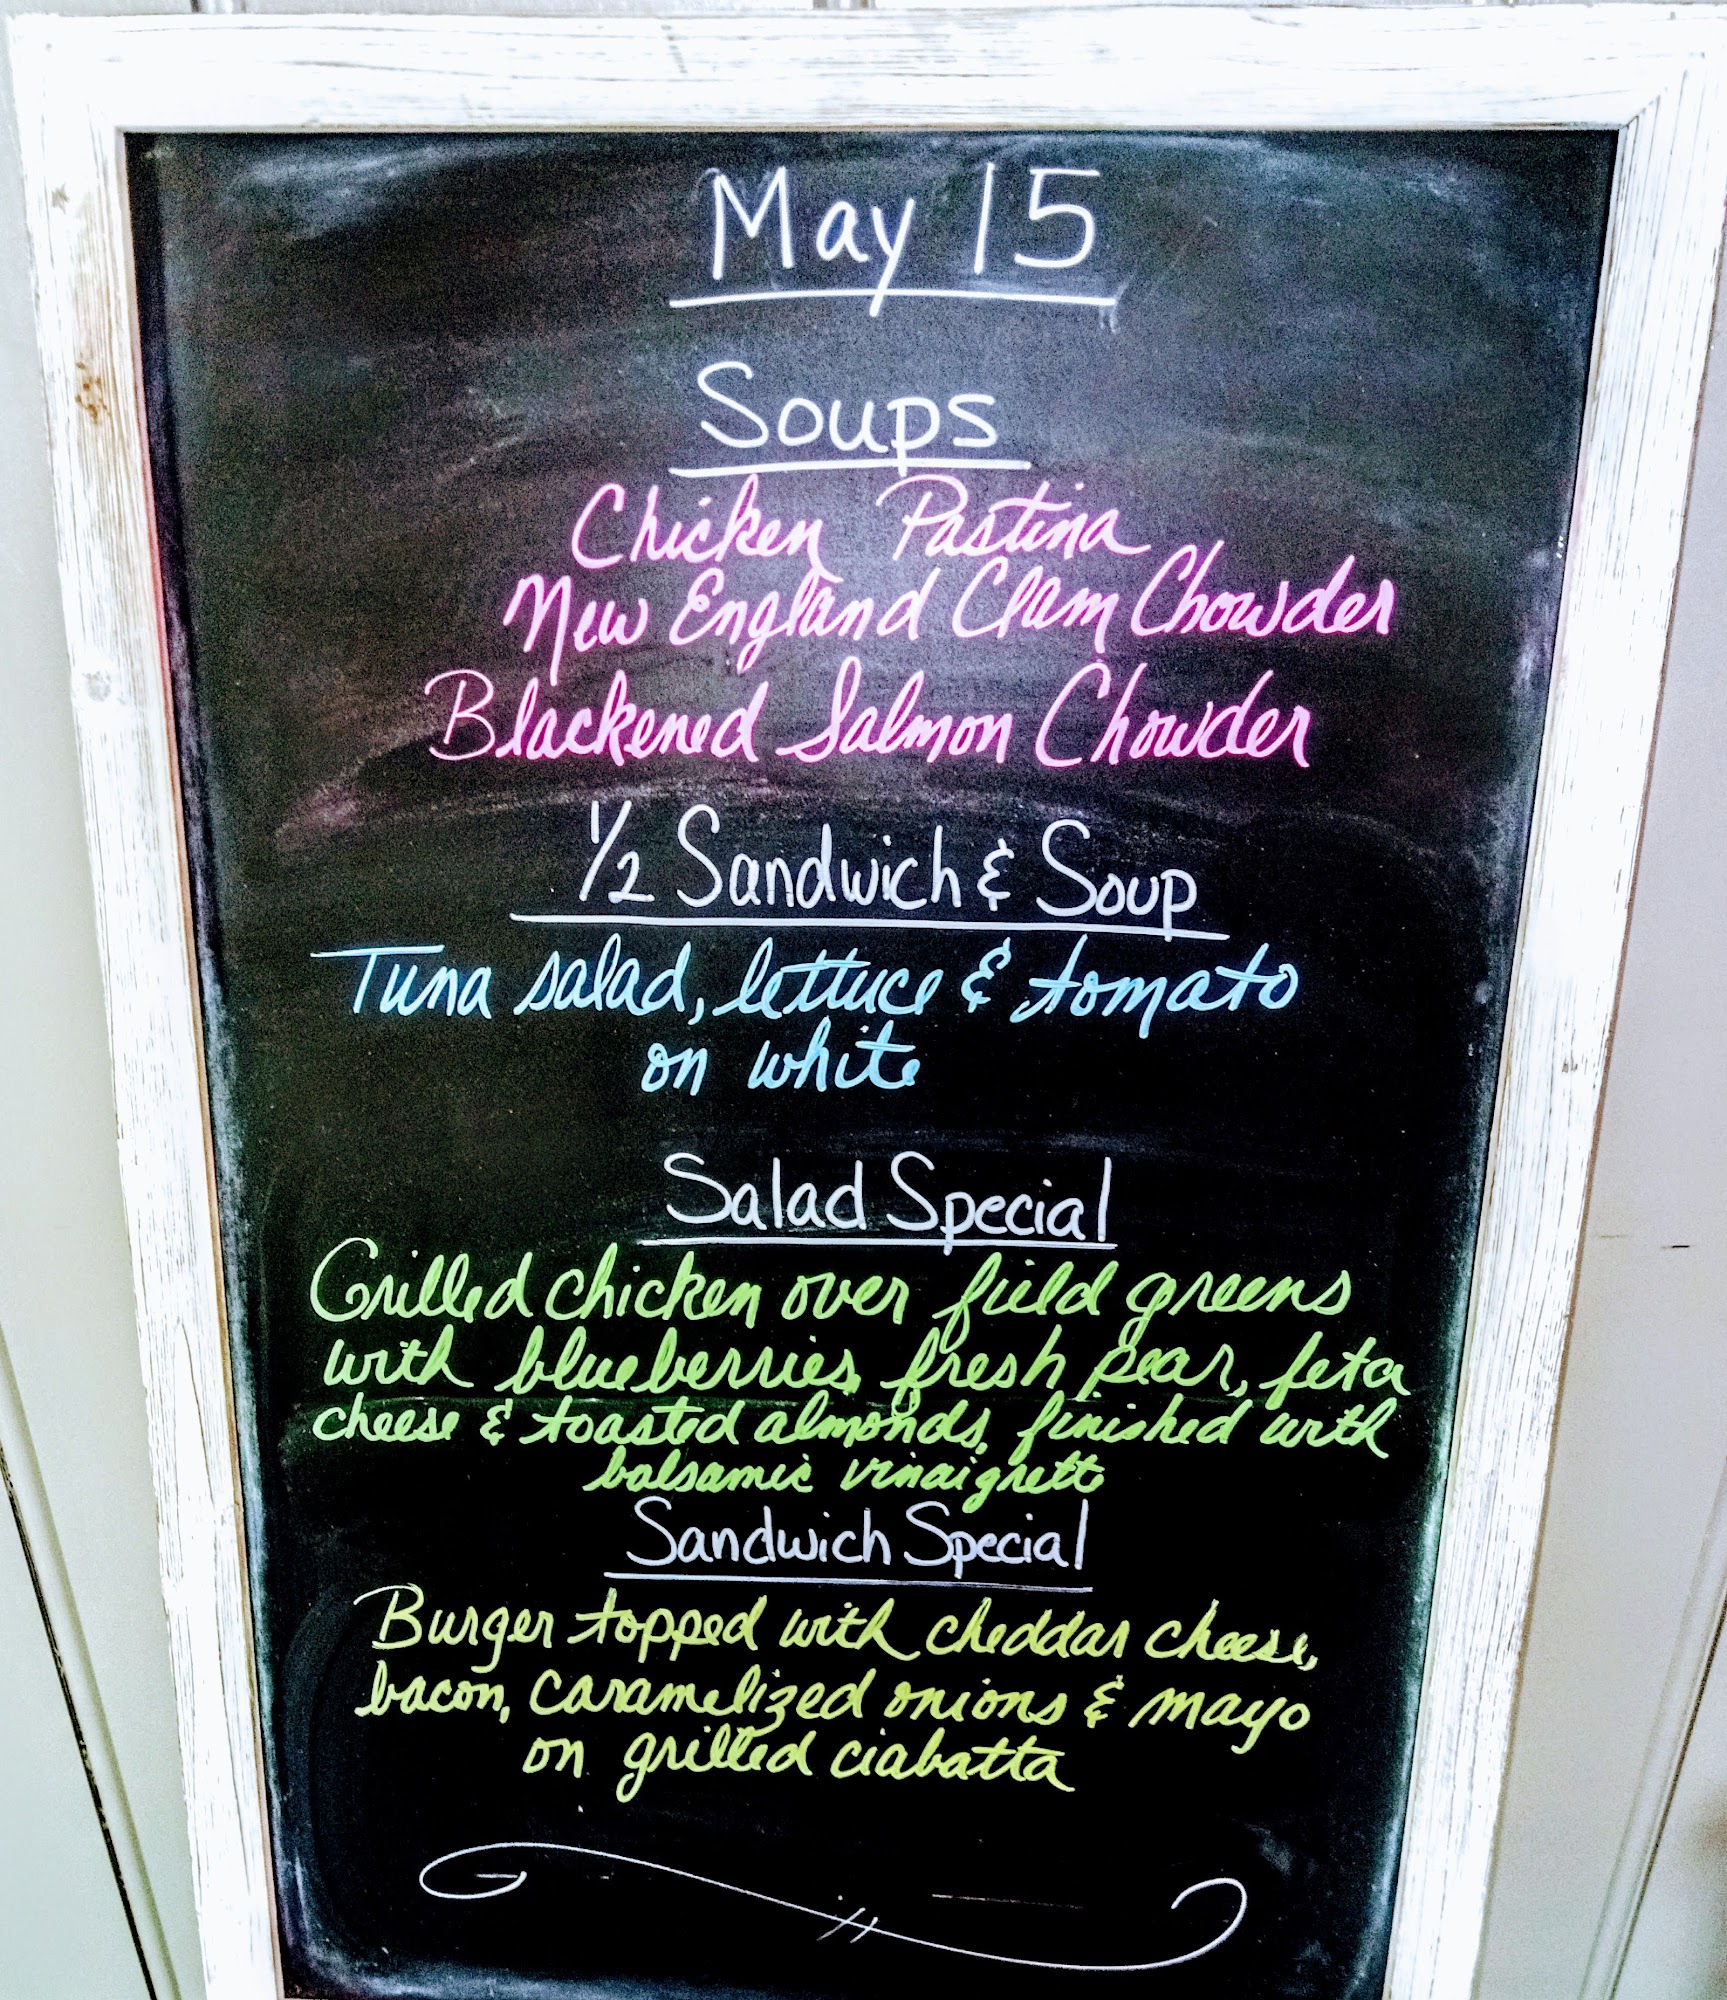 May 15
Soups
Chicken Pastina
New England Clam Chowder
Blackened Salmon Chowder
1/2 Sandwich & Soup
Tuna salad, lettuce & tomato
on white
Salad Special
Grilled chicken over field greens
with blueberries, fresh pear, feta
cheese & toasted almonds, finished with
balsamic vinaigrette
Sandwich Special
Burger topped with cheddar cheese,
bacon, caramelized onions & mayo
on grilled ciabatta